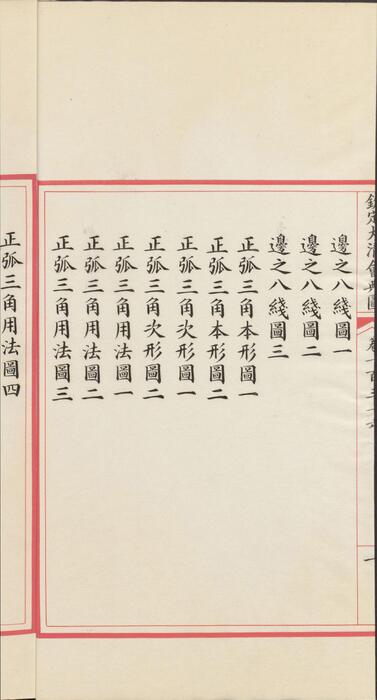 欽定大清會典圖
卷一百三十
一
邊之八綫圖一
邊之八綫圖二
邊之八綫圖三
正弧三角本形圖一
正弧三角本形圖二
正弧三角次形圖一
正弧三角次形圖二
正弧三角用法圖一
正弧三角用法圖二
正弧三角用法圖三
正弧三角用法圖四